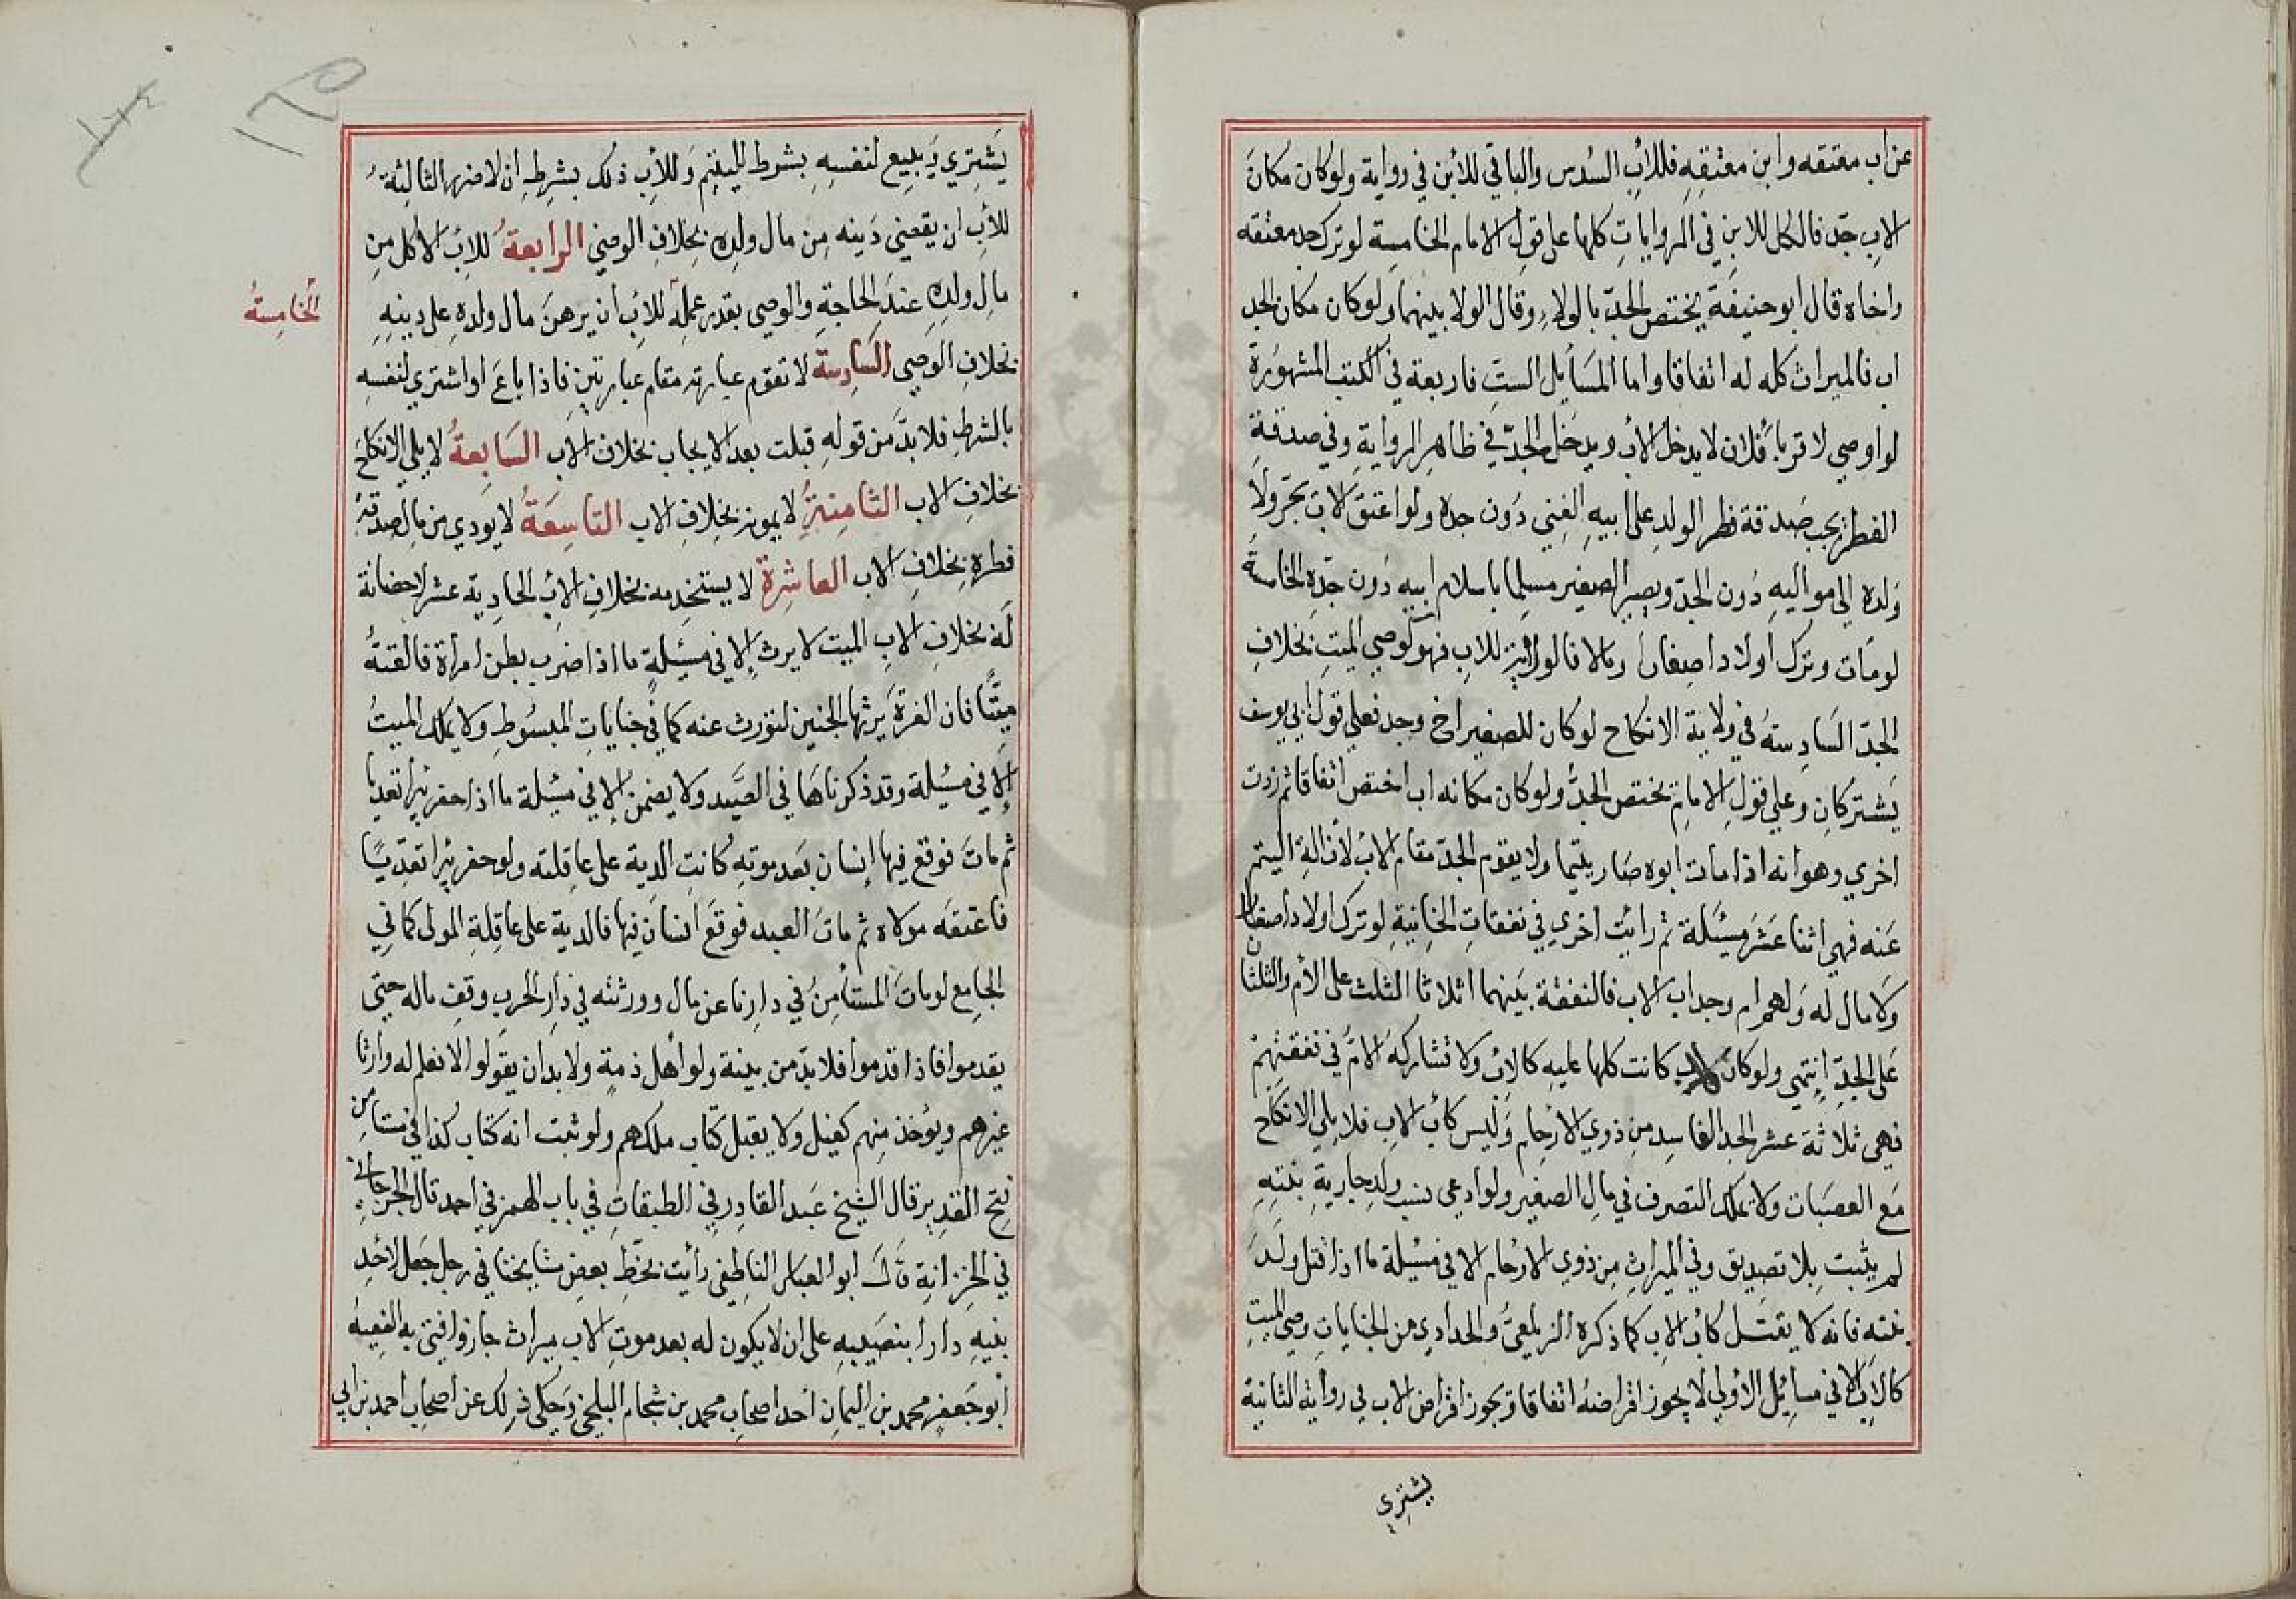 عن اب معتقه وابن معتقه فللاب السدس والباقي للابن في رواية ولو كان مكان
الاب جد فالكل للابن في الروايات كلها على قول الامام الخامسة لو ترك جد معتقه
واخاه قال ابو حنيفة يختص الجد بالولاء وقال الولا بينهما ولو كان مكان الجد
اب فالميراث كله له اتفاقا واما المسايل الست فاربعة في الكتب المشهورة
لو اوصي لاقرباء فلان لا يدخل الاب ويدخل الجد في ظاهر الرواية وفي صدقة
الفطر تجب صدقة فطر الولد على ابيه الغني دون جده ولو اعتق الاب يجر ولا
ولده الى مواليه دون الجد ويصير الصغير مسلما باسلام ابيه دون جده الخامسة
لو مات وترك اولادا صغارا ومالا فالولاية للاب فهو كوصي الميت بخلاف
الجد السادسة في ولاية الانكاح لو كان للصغير اخ وجد فعلي قول ابي يوسف
يشتركان وعلي قول الامام يختص الجد ولو كان مكانه اب اختص اتفاقا ثم زدت
اخري وهو انه اذا مات ابوه صار يتيما ولا يقوم الجد مقام الاب لازالة اليتم
عنه فهي اثنا عشر مسئلة ثم رايت اخري في نفقات الخانية لو ترك اولادا صغارا
ولا مال له ولهم ام وجد اب الاب فالنفقة بينهما اثلاثا الثلث على الام والثلثان
على الجد انتهي ولو كان كالاب كانت كلها عليه كالاب ولا تشاركه الام في نفقتهم
فهي ثلاثة عشر الجد الفاسد من ذوي الارحام وليس كاب الاب فلا يلي الانكاح
مع العصبات ولا يملك التصرف في مال الصغير ولو ادعي نسب ولد جارية بنته
لم يثبت بلا تصديق وفي الميراث من ذوي الارحام الا في مسئلة ما اذا قتل ولد
بنته فانه لا يقتل كاب الاب كما ذكره الزيلعي والحدادي من الجنايات وصي الميت
كالاب الا في مسائل الاولي لا يجوز اقراضه اتفاقا ويجوز اقراض الاب في رواية الثانية
يشتري
يشتري ويبيع لنفسه بشرط لليتيم وللاب ذلك بشرط ان لا ضرر الثالثة
للاب ان يقضي دينه من مال ولده بخلاف الوصي الرابعة للاب الاكل من
مال ولده عند الحاجة والوصي بقدر عمله للاب ان يرهن مال ولده على دينه
الخامسة
بخلاف الوصي السادسة لا تقوم عبارته مقام عبارتين فاذا باع او اشتري لنفسه
بالشرط فلا بد من قوله قبلت بعد الايجاب بخلاف الاب السابعة لا يلي الانكاح
بخلاف الاب الثامنة لا يمونه بخلاف الاب التاسعة لا يودي من ماله صدقة
فطره بخلاف الاب العاشرة لا يستخدمه بخلاف الاب الحادية عشر لا حضانة
له بخلاف الاب الميت لا يرث الا في مسئلة ما اذا ضرب بطن امراة فالقته
ميتا فان الغرة يرثها الجنين لتورث عنه كما في جنايات المبسوط ولا يملك الميت
الا في مسئلة وقد ذكرناها في الصيد ولا يضمن الا في مسئلة ما اذا حفر بئرا تعديا
ثم مات فوقع فيها انسان بعد موته كانت الدية على عاقلته ولو حفر بئرا تعديا
فاعتقه مولاه ثم مات العبد فوقع انسان فيها فالدية على عاقلة المولى كما في
الجامع لو مات المستأمن في دارنا عن مال وورثته في دار الحرب وقف ماله حتى
يقدموا فاذا قدموا فلا بد من بينة ولو اهل ذمة ولا بد ان يقولوا لا نعلم له وارثا
غيرهم ويؤخذ منهم كفيل ولا يقبل كتاب ملكهم ولو ثبت انه كتاب كذا في مستامن
فتح القدير قال الشيخ عبد القادر في الطبقات في باب الهمز في احمد قال الجرجاني
في الخزانة قال ابو العباس الناطفي رأيت بخط بعض مشايخنا في رجل جعل لاحد
بنيه دارا بنصيبه على ان لا يكون له بعد موت الاب ميراث جاز وافتى به الفقيه
ابو جعفر محمد بن اليمان احد اصحاب محمد بن شجاع البلخي وحكي ذلك عن اصحاب احمد بن ابي